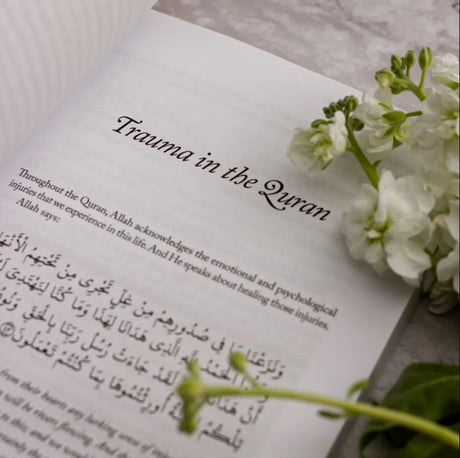 Trauma in the Quran
Throughout the Quran, Allah acknowledges the emotional and psychological
injuries that we experience in this life. And He speaks about healing those injuries.
Allah says:
وَنَزَعْنَا مَا فِي صُدُورِهِم مِّنْ غِلٍّ تَجْرِي مِن تَحْتِهِمُ الْأَنْهَارُ
الْحَمْدُ لِلَّهِ الَّذِي هَدَانَا لِهَٰذَا وَمَا كُنَّا لِنَهْتَدِيَ
أَنْ هَدَانَا لَقَدْ جَاءَتْ رُسُلُ رَبِّنَا بِالْحَقِّ وَنُودُوا
تِلْكُمُ أُورِثْتُمُوهَا بِمَا كُنتُمْ تَعْمَلُونَ
from their hearts any lurking sense of
will be rivers flowing. And the
to this, and we would
certainly the